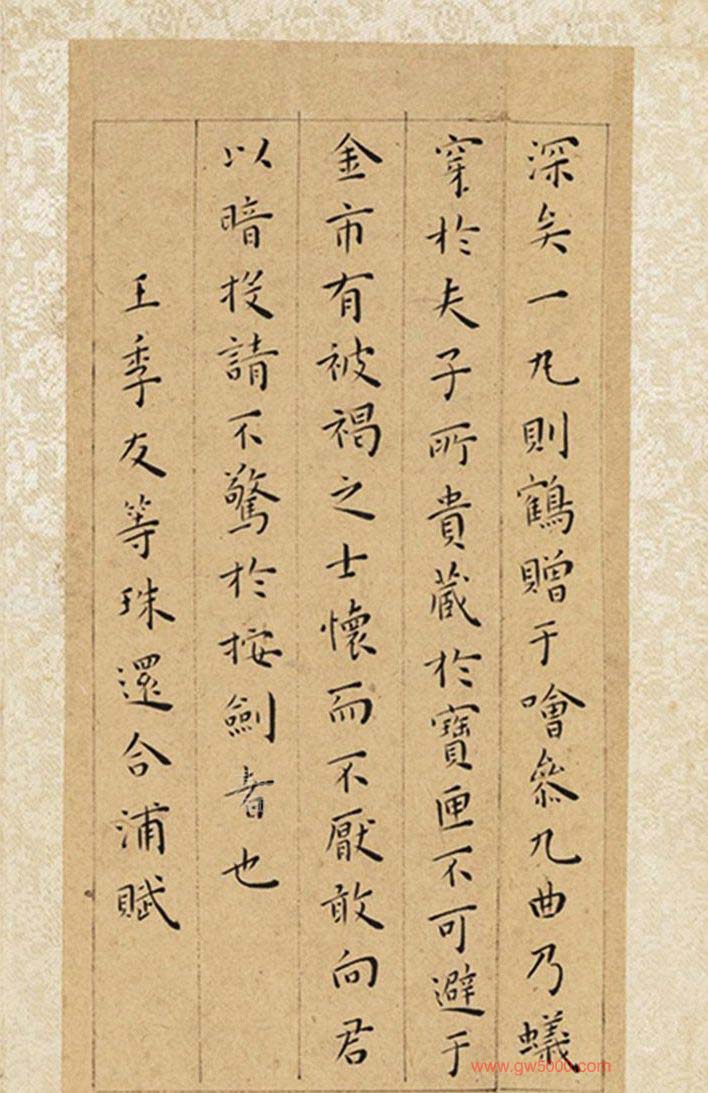 深矣一九則鶴贈于噲參九曲乃蟻
穿於夫子所貴藏於寶匣不可避于
金市有被褐之士懷而不厭敢向君
以暗投請不驚於按劍者也
王季友等珠還合浦賦
www.gw5000.com